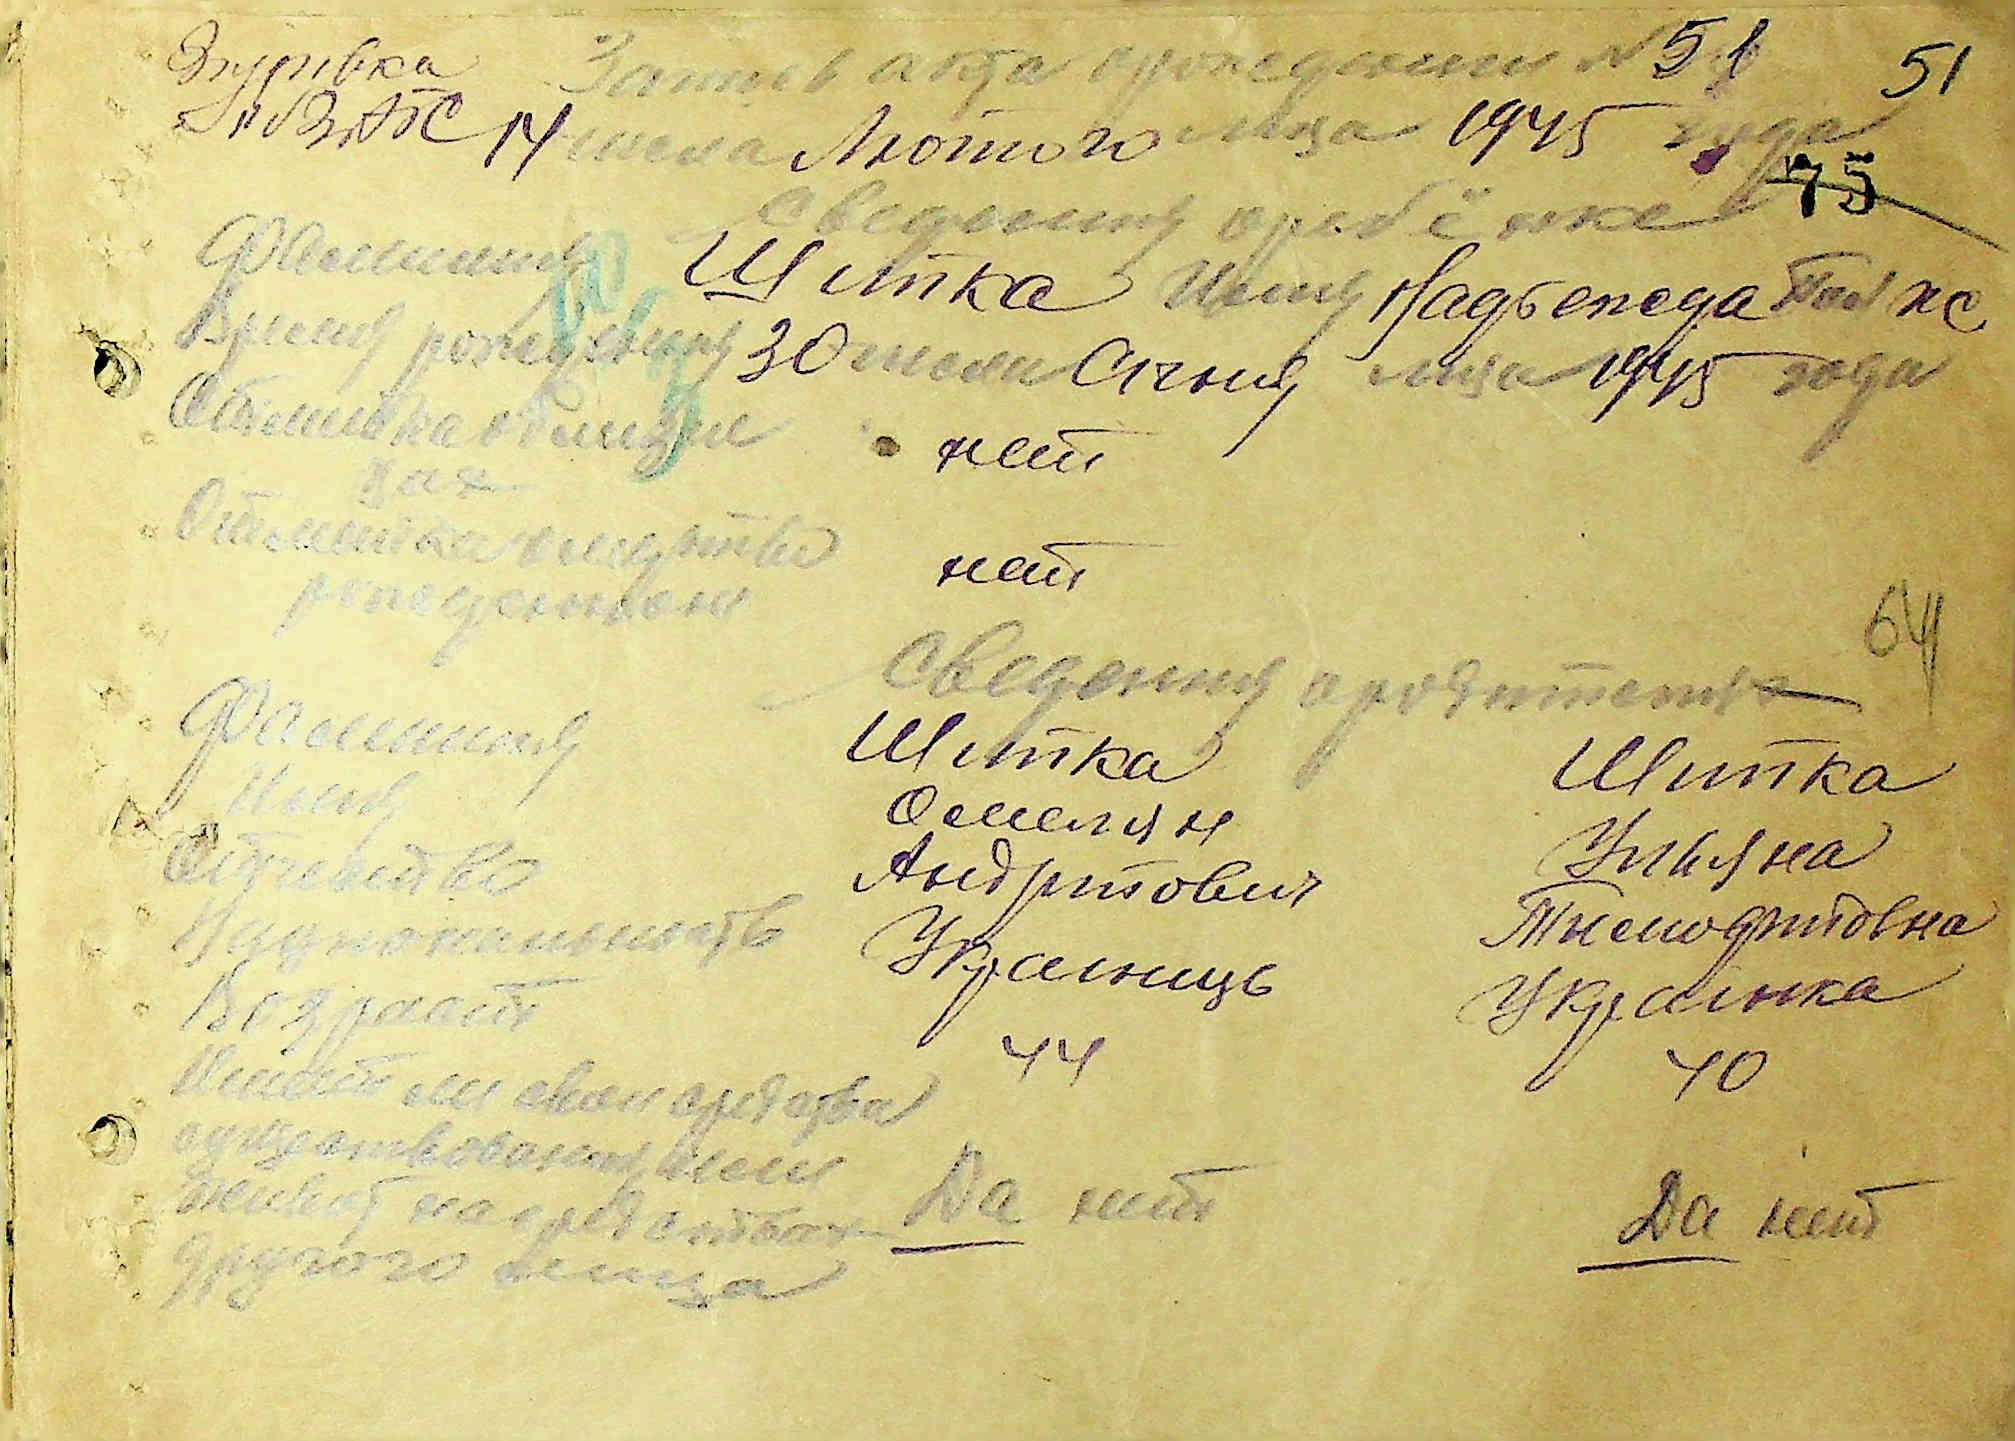 Згурівка
ЗАГС
Запись акта о рождении № 51 51
14 числа Лютого м-ца 1945 года
75
Сведения о ребёнке
Фамилия Шитка Имя Надъежда Пол ж
Время рождения 30 числа Січня м-ца 1945 года
Отметка о близне нет
цах
Отметка о мертво нет
рожденном
64
Сведения о родителях
Фамилия Шитка Шитка
Имя Омелян Уляна
Отчество Андрійович Тимофіївна
Национальность Українць Українка
Возраст 44 40
Имеет ли свои средства
существования, или
живет на средствах Да нет Да нет
другого лица